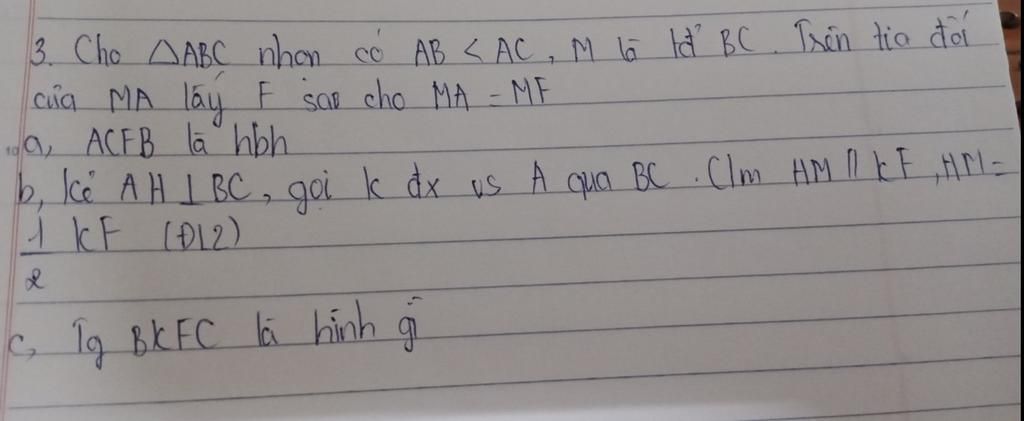 3. Cho △ABC nhọn có AB < AC, M là tđ BC. Trên tia đối
của MA lấy F sao cho MA = MF
a, ACFB là hbh
b, Kẻ AH ⊥ BC, gọi K đx vs A qua BC. C/m HM // KF, HM =
1/2 KF (ĐL2)
c, Tg BKFC là hình gì